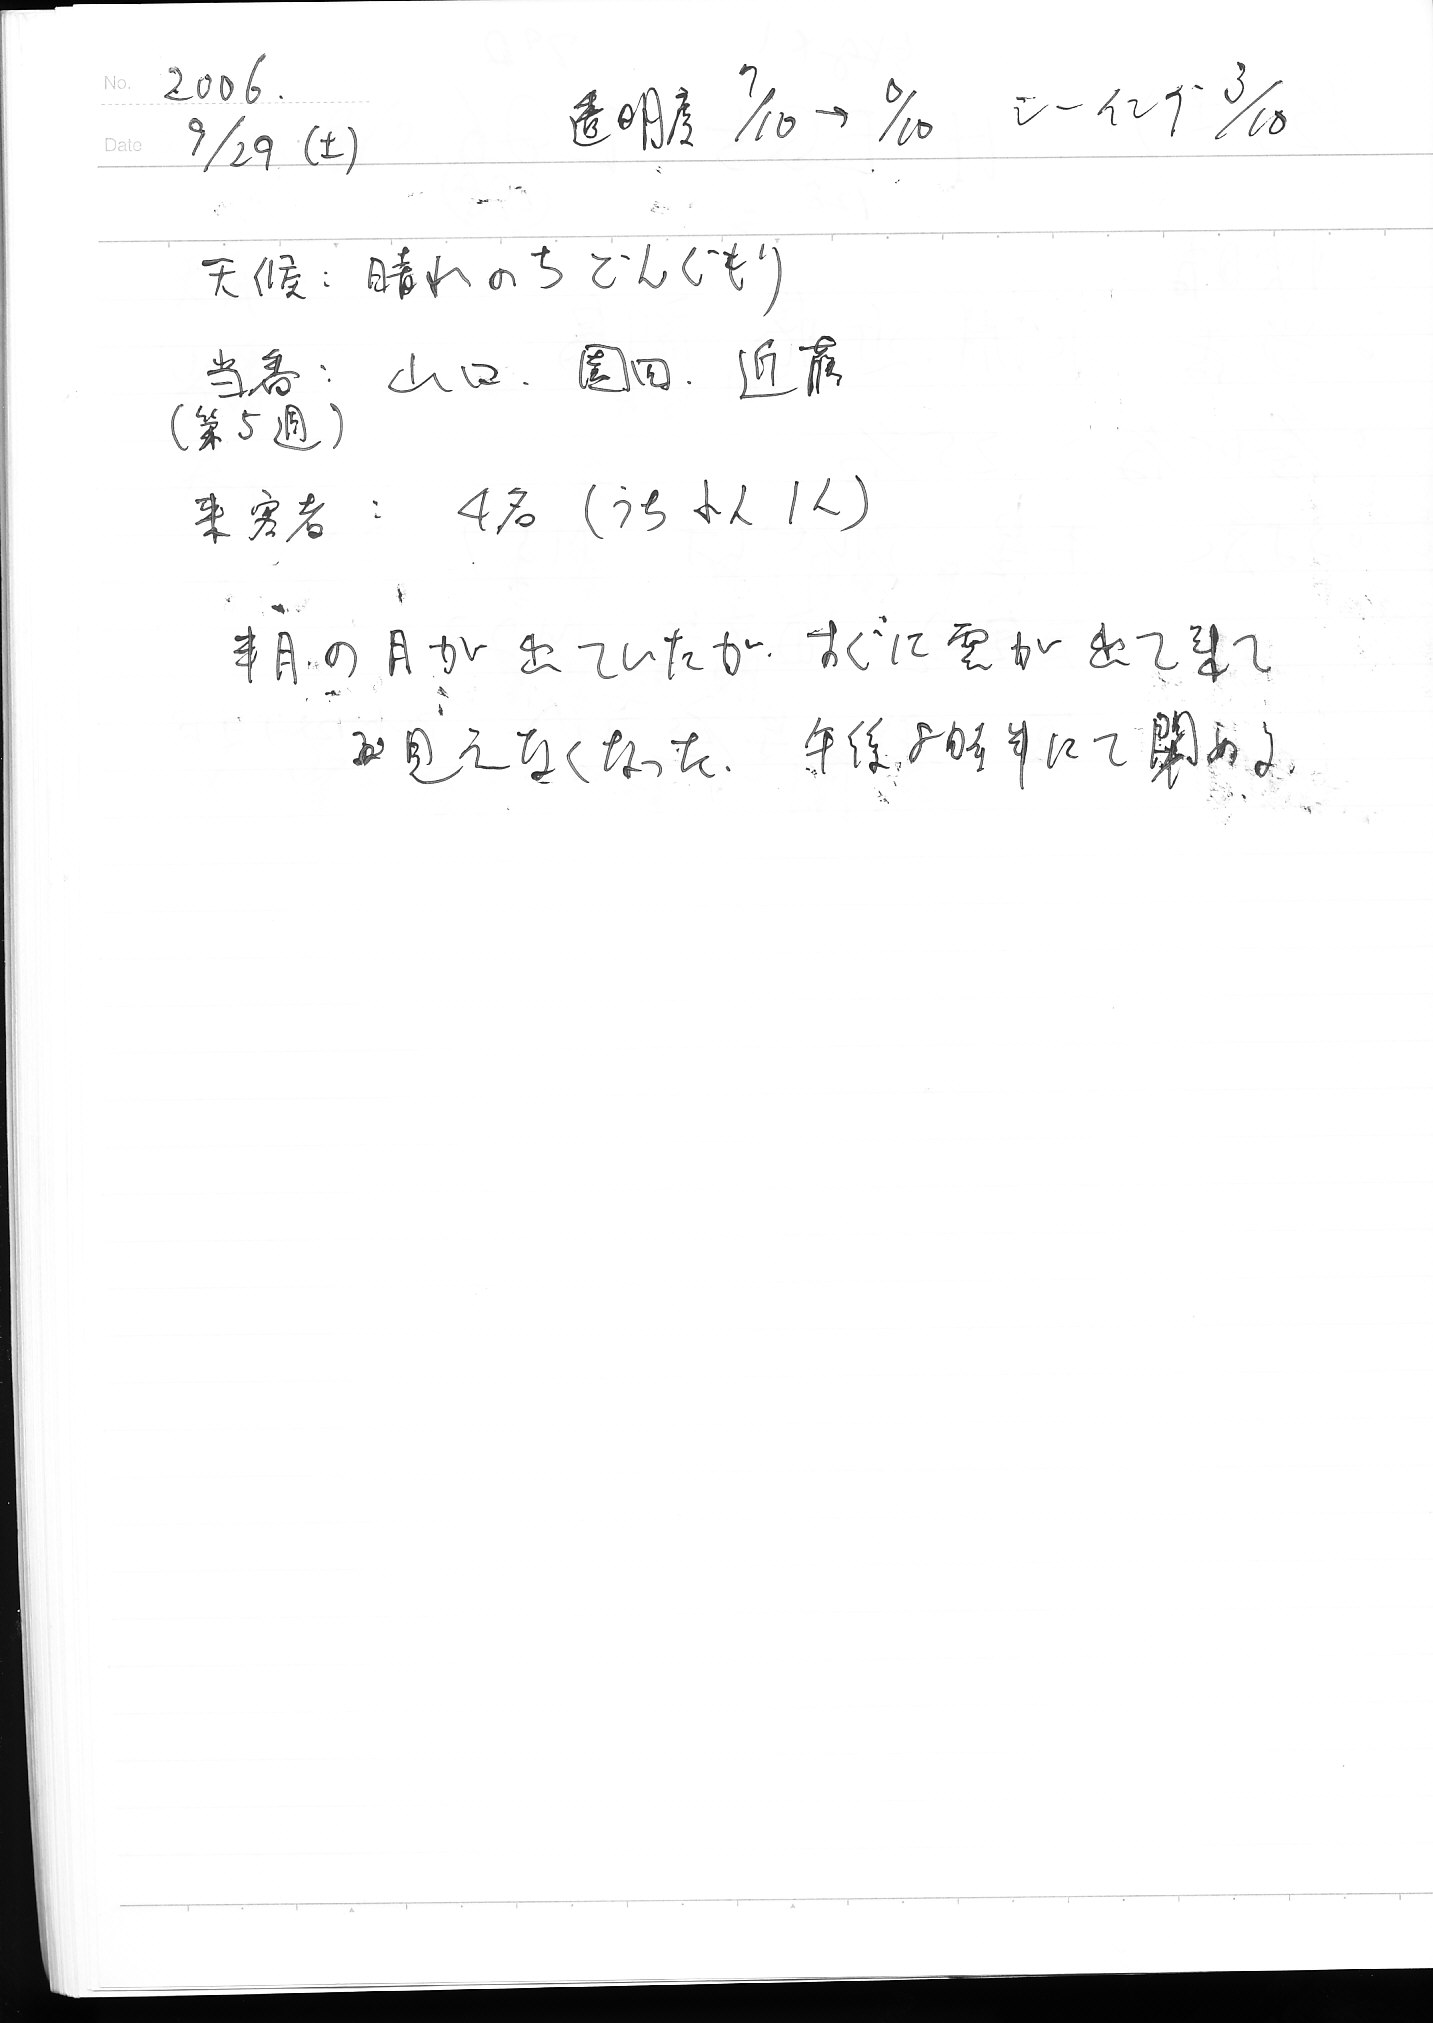 No. 2006.
Date 9/29 (土)
透明度 7/10 → 0/10 シーイング 3/10
天候: 晴れのちどんぐもり
当番: 山口. 園田. 近藤
(第5週)
来客者: 4名 (うち 1人)
半月の月が出ていたが. すぐに雲が出て来て
見えなくなった. 午後8時半にて閉める.